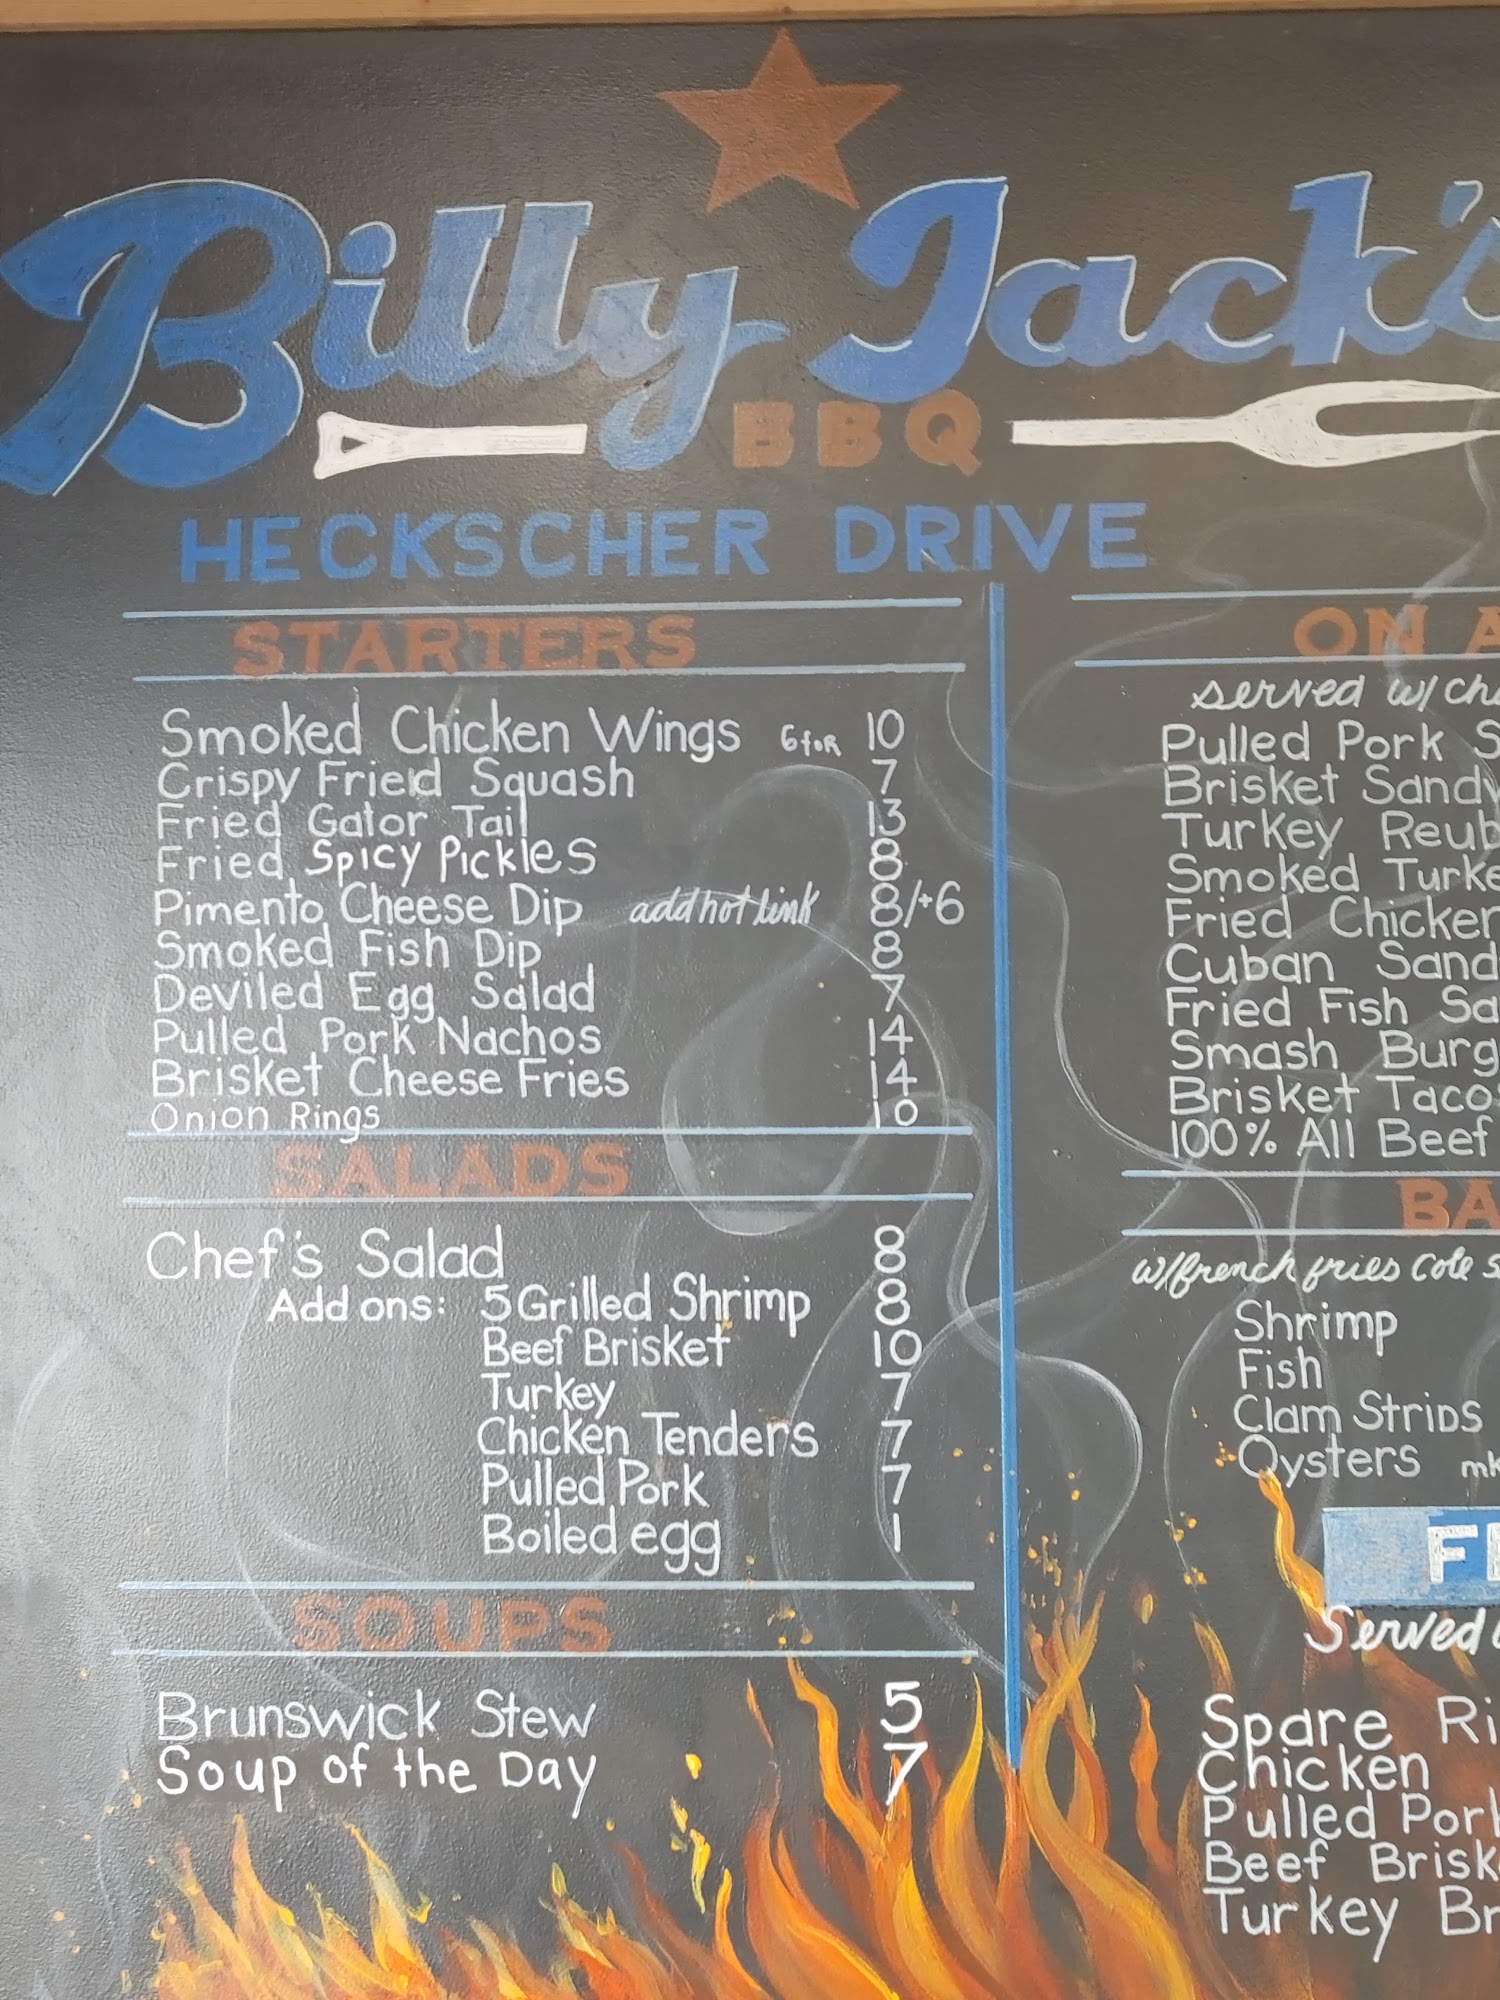 Billy Jack's
BBQ
HECKSCHER DRIVE
STARTERS
Smoked Chicken Wings 6 for 10
Crispy Fried Squash 7
Fried Gator Tail 13
Fried Spicy Pickles 8
Pimento Cheese Dip add hot link 8/+6
Smoked Fish Dip 8
Deviled Egg Salad 7
Pulled Pork Nachos 14
Brisket Cheese Fries 14
Onion Rings 10
SALADS
Chef's Salad 8
Add ons: 5 Grilled Shrimp 8
Beef Brisket 10
Turkey 7
Chicken Tenders 7
Pulled Pork 7
Boiled egg 1
SOUPS
Brunswick Stew 5
Soup of the Day 7
ON A
served w/ ch
Pulled Pork S
Brisket Sandw
Turkey Reub
Smoked Turke
Fried Chicken
Cuban Sand
Fried Fish Sa
Smash Burg
Brisket Tacos
100% All Beef
BA
w/french fries cole s
Shrimp
Fish
Clam Strips
Oysters mk
F
Served
Spare Ri
Chicken
Pulled Pork
Beef Brisk
Turkey Br